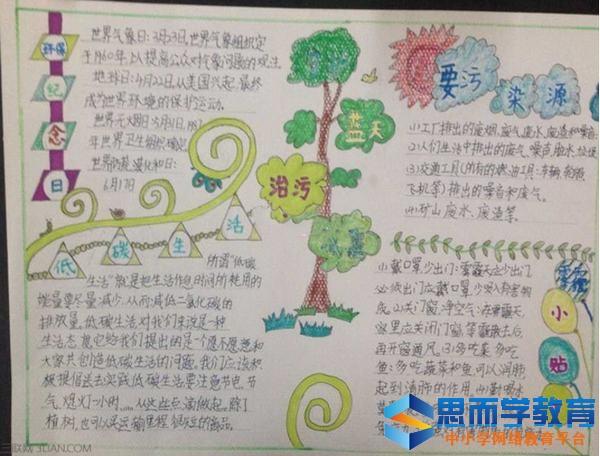 环保
纪
念
日
世界气象日:3月23日,世界气象组织定
于1960年,以提高公众对气象问题的观注。
地球日:4月22日从美国兴起,最终
成为世界环境的保护运动。
世界无烟日:5月31日,1987
年世界卫生组织确定
世界防荒漠化和日:
6月17日
低 碳 生 活
所谓"低碳
生活"就是把生活作息时间所耗用的
能量要尽量减少,从而减低二氧化碳的
排放量,低碳生活对我们来说是一种
生活态
大家共创造低碳生活的问题。我们应该积
极提倡去实践低碳生活要注意节电、节
气、熄灯一小时……从这些点滴做起。除了
植树,
蓝天
治污
要污
染源
(1)工厂排出的废烟、废气、废水、废渣和噪音
(2)人们生活中排出的废气、噪音、脏水、垃圾
(3)交通工具(所有的燃油工具:车辆、轮船、
飞机等)排出的噪音和废气。
(4)矿山废水、废渣等。
雾霾
小
贴
(1)戴口罩少出门:雾霾天少出门
必须出门应戴口罩少吸入有害物
质。(2)关门窗,净空气:在雾霾天
里应关闭门窗,等雾霾散去后
再开窗通风。(3)多吃菜多吃
鱼:多吃蔬菜和鱼可以润肺
起到清肺的作用。(4)勤喝水
思而学教育
中小学网络教育平台
三联网 3LIAN.COM